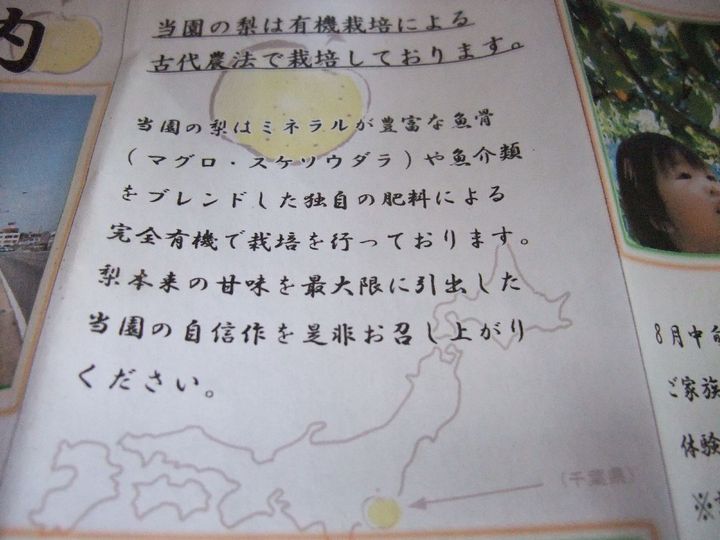 内
当園の梨は有機栽培による
古代農法で栽培しております。
当園の梨はミネラルが豊富な魚骨
(マグロ・スケソウダラ)や魚介類
をブレンドした独自の肥料による
完全有機で栽培を行っております。
梨本来の甘味を最大限に引出した
当園の自信作を是非お召し上がり
ください。
8月中旬
ご家族
体験
※
(千葉県)